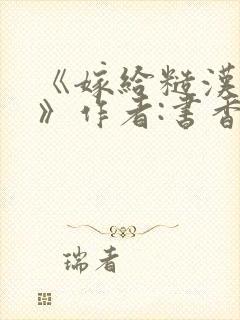 《嫁给糙汉
》作者:书香
瑞者